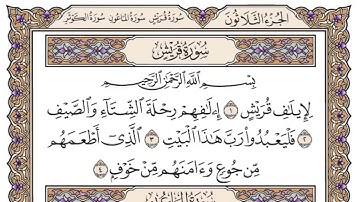 الجزء الثلاثون سورة قريش سورة الماعون سورة الكوثر
سورة قريش
بِسْمِ اللَّهِ الرَّحْمَٰنِ الرَّحِيمِ
لِإِيلَٰفِ قُرَيْشٍ ١ إِۦلَٰفِهِمْ رِحْلَةَ الشِّتَآءِ وَالصَّيْفِ
٢ فَلْيَعْبُدُوا۟ رَبَّ هَٰذَا الْبَيْتِ ٣ الَّذِىٓ أَطْعَمَهُم
مِّن جُوعٍ وَءَامَنَهُم مِّنْ خَوْفٍۭ ٤
سورة الماعون